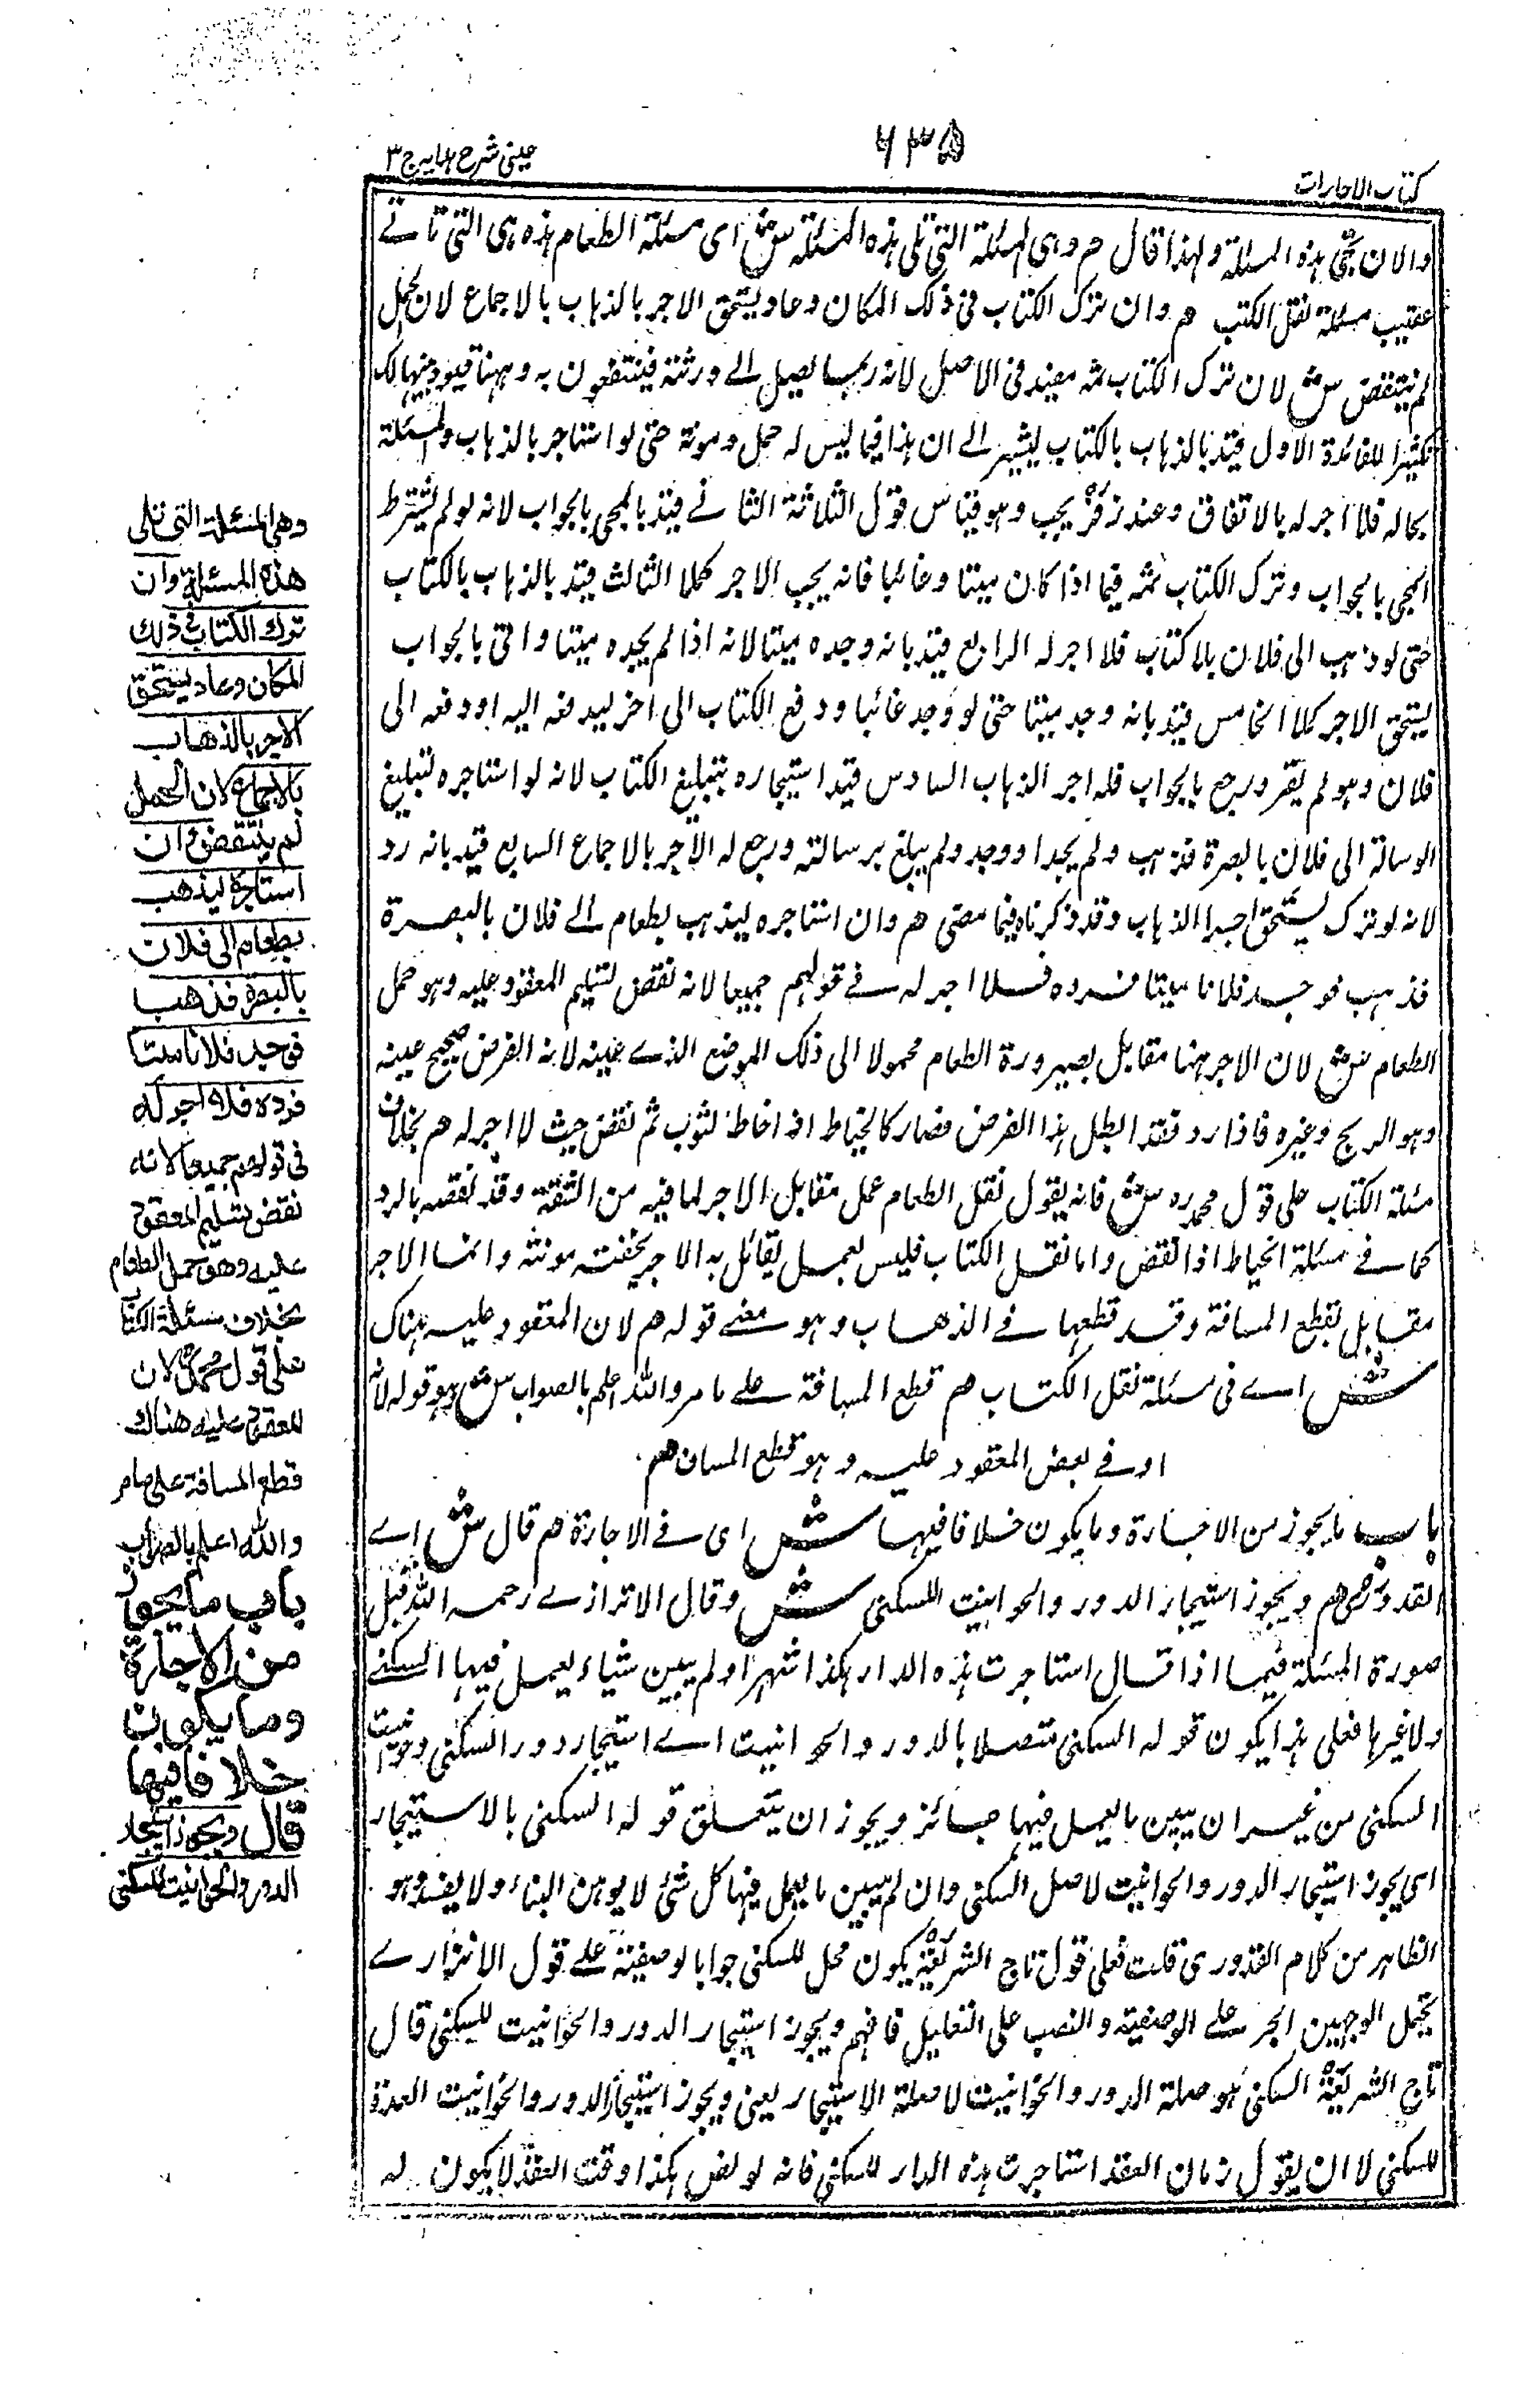 كتاب الاجارات
٦٣٥
عينى شرح هدايه ج ٣
والان يجئ هذه المسئلة ولهذا قال م وهى المسئلة التى تلى هذه المسئلة ش اى مسئلة الطعام هذه هى التى تأتے
عقيب مسئلة نقل الكتب م وان ترك الكتاب فى ذلك المكان وعاد يستحق الاجر بالذهاب بالاجماع لان الحمل
لم ينتقض ش لان ترك الكتاب ثمه مفيد فى الاصل لانه ربما يصل الے ورثته فينتفعون به وههنا قيود
تكثيرا للفائدة الاول قيد بالذهاب بالكتاب ليشير الے ان هذا فيما ليس له حمل ومونة حتى لو استاجر بالذهاب والمسئلة
بحاله فلا اجر له بالاتفاق وعند زفرؒ يجب وهو قياس قول الثلاثة الثانے قيد بالمجى بالجواب لانه لو لم يشترط
المجى بالجواب وترك الكتاب ثمه فيما اذا كان ميتا وغائبا فانه يجب الاجر كملا الثالث قيد بالذهاب بالكتاب
حتى لو ذهب الى فلان بلا كتاب فلا اجر له الرابع قيد بانه وجده ميتا لانه اذا لم يجده ميتا واتى بالجواب
يستحق الاجر كملا الخامس قيد بانه وجد ميتا حتى لو وجد غائبا ودفع الكتاب الى اخر ليدفعه اليه او دفعه الى
فلان وهو لم يقر ورجع بالجواب فله اجر الذهاب السادس قيد استيجاره بتبليغ الكتاب لانه لو استاجره لتبليغ
الرسالة الى فلان بالبصرة فذهب ولم يجد او وجد ولم يبلغ برسالته ورجع له الاجر بالاجماع السابع قيد بانه رد
لانه لو ترك يستحق اجر الذهاب وقد ذكرناه فيما مضى هم وان استاجره ليذهب بطعام الے فلان بالبصرة
فذهب فوجد فلانا ميتا فرده فلا اجر له فے قولهم جميعا لانه نقض تسليم المعقود عليه وهو حمل
الطعام ش لان الاجر ههنا مقابل بصيرورة الطعام محمولا الى ذلك الموضع الذے عينه لانه الغرض صحيح عينه
وهو الربح وغيره فاذا رد فقد ابطل هذا الغرض فصار كالخياط اذا خاط لثوب ثم نقض حيث لا اجر له هم بخلاف
مسئلة الكتاب على قول محمد ره ش فانه يقول نقل الطعام عمل مقابل الاجر لما فيه من الثقة وقد نقضه بالرد
كما فے مسئلة الخياط اذا نقض واما نقل الكتاب فليس بعمل يقابل به الاجر لخفت مونته وانما الاجر
مقابل لقطع المسافة وقد قطعها فے الذهاب وهو معنے قوله هم لان المعقود عليه هناك
ش اے فى مسئلة نقل الكتاب هم قطع المسافة علے ما مر والله اعلم بالصواب ش وهو قوله لانه
اوفے بعض المعقود عليه وهو قطع المسافة هم
باب ما يجوز من الاجارة وما يكون خلافا فيها ش اى فے الاجارة هم قال ش اے
القدورى هم ويجوز استيجار الدور والحوانيت للسكنى ش وقال الاترازے رحمه الله قيل
صورة المسئلة فيما اذا قال استاجرت هذه الدار هكذا شهرا ولم يبين شياء يعمل فيها السكنے
ولا غيرها فعلى هذا يكون قوله السكنى متصلا بالدور والحوانيت اے استيجار دور السكنى وحوانيت
السكنى من غير ان يبين ما يعمل فيها جائز ويجوز ان يتعلق قوله السكنى بالاستيجار
اى يجوز استيجار الدور والحوانيت لاصل السكنى وان لم يبين ما يعمل فيها كل شئ لا يوهن البناء ولا يفسد وهو
الظاهر من كلام القدورى قلت فعلى قول تاج الشريعةؒ يكون محل للسكنى جرا بالوصفية علے قول الاترازے
يحتمل الوجهين الجر علے الوصفية والنصب على التعليل فافهم ويجوز استيجار الدور والحوانيت للسكنى قال
تاج الشريعةؒ السكنى هو صلة الدور والحوانيت لا صلة الاستيجار يعنى ويجوز استيجار الدور والحوانيت المعدة
للسكنى لا ان يقول زمان العقد استاجرت هذه الدار للسكنى فانه لو نص هكذا وقت العقد لا يكون له
وهى المسئلة التى تلى
هذه المسئلة وان
ترك الكتاب فى ذلك
المكان وعاد يستحق
الاجر بالذهاب
بالاجماع لان الحمل
لم ينتقض وان
استاجره ليذهب
بطعام الى فلان
بالبصرة فذهب
فوجد فلانا ميتا
فرده فلا اجر له
فى قولهم جميعا لانه
نقض تسليم المعقود
عليه وهو حمل الطعام
بخلاف مسئلة الكتاب
على قول محمدؒ لان
المعقود عليه هناك
قطع المسافة على ما مر
والله اعلم بالصواب
باب ما يجوز
من الاجارة
وما يكون
خلافا فيها
قال ويجوز استيجار
الدور والحوانيت للسكنى